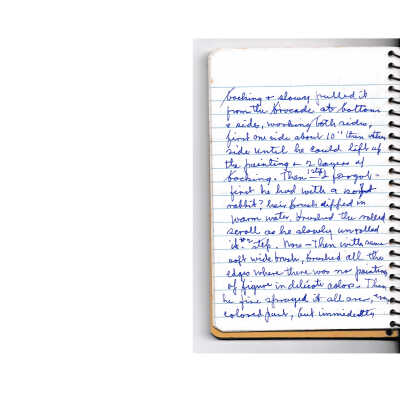 backing & slowly pulled it
from the brocade at bottom
& sides, working both sides,
first one side about 10" then other
side until he could lift up
the painting & 2 layers of
backing. Then 1st I forgot -
first he had with a soft
rabbit? hair brush dipped in
warm water brushed the rolled
scroll as he slowly unrolled
it. #2 step. Now - Then with same
soft wide brush, brushed all the
edges where there was no painting
of figure in delicate colors. Then
he fine sprayed it all over,
colored part, but immediately